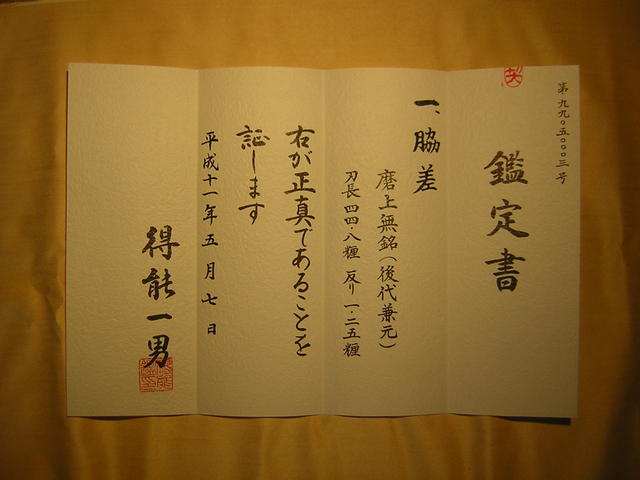 第九九〇五〇〇〇三号
鑑定書
一、脇差
磨上無銘(後代兼元)
刃長四四・八糎 反り一・二五糎
右が正真であることを
証します
平成十一年五月七日
得能一男